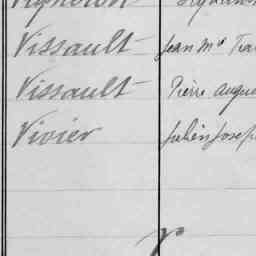 Vissault Jean Mie
Vissault Pierre Augu
Vivier Julien Josep